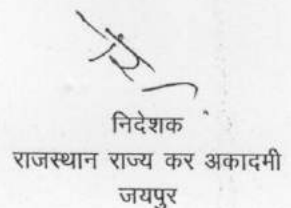 निदेशक
राजस्थान राज्य कर अकादमी
जयपुर